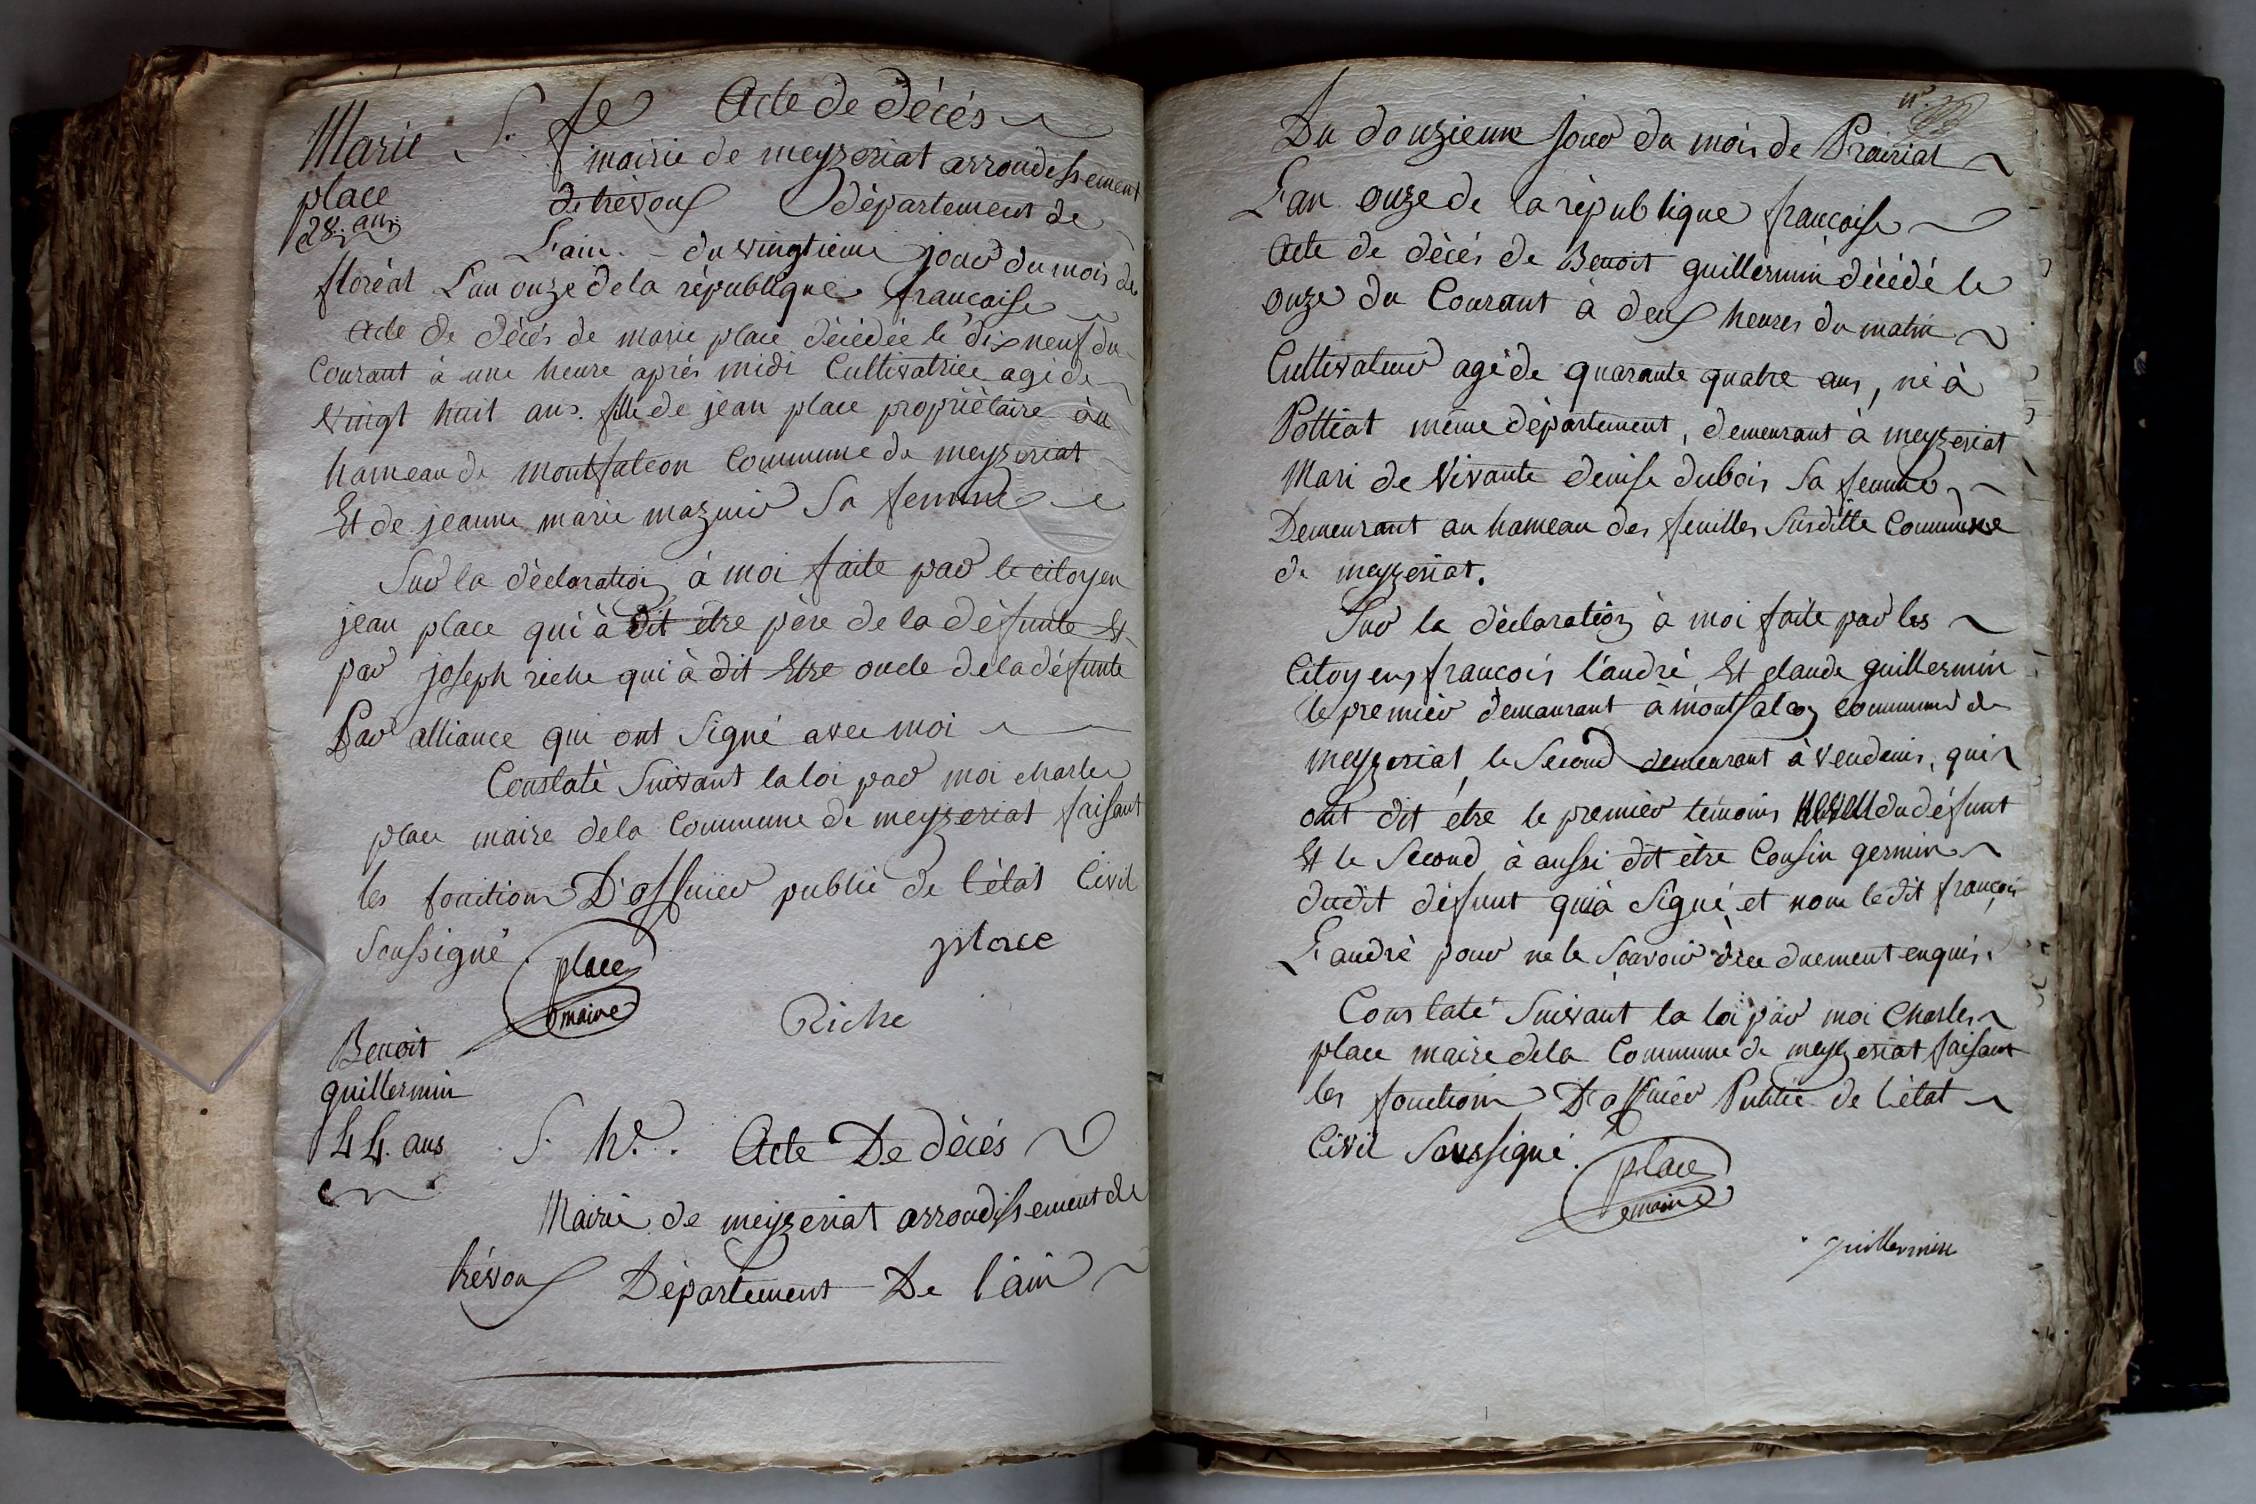 Marie
place
28. ans
S. fe Acte de décés
mairie de meyzeriat arrondissement
de trévoux département de
L'ain. du vingtieme jour du mois de
floréal L'an onze de la république francaise
Acte de décés de marie place décédée le dix neuf du
Courant à une heure aprés midi Cultivatrice agé de
vingt huit ans. fille de jean place propriètaire au
hameau de montfalcon Commune de meyzeriat
Et de jeanne marie mazuir Sa femme
Sur la dèclaration à moi faite par le citoyen
jean place qui à dit etre père de la défunte Et
par joseph riche qui à dit Etre oncle de la défunte
Par alliance qui ont Signé avec moi
Constaté Suivant la loi par moi charles
place maire de la Commune de meyzeriat faisant
les fonctions D'officier public de l'état Civil
Soussigné
place
place
maire
Riche
Benoit
guillermin
44. ans
S. h.e. Acte De décés
Mairie de meyzeriat arrondissement de
trévoux Département De l'ain
n.º
Du douzieme jour du mois de Prairial
L'an onze de la république francaise
Acte de décés de Benoit guillermin décédé le
onze du Courant à deux heures du matin
Cultivateur agé de quarante quatre ans, né à
Polliat même département, demeurant à meyzeriat
Mari de Vivante denise dubois Sa femme
Demeurant au hameau des feuilles Susditte Commune
de meyzeriat.
Sur la dèclaration à moi faite par les
Citoyens francois l'andré Et claude guillermin
le premier demeurant à montfalcon commune de
meyzeriat, le Second demeurant à Vendeins, qui
ont dit être le premier témoins neveu du défunt
Et le Second à aussi dit être Cousin germin
dudit défunt qui à Signé et non le dit françois
L'andrè pour ne le Scavoir de ce duement enquis.
Constaté Suivant la loi par moi Charles
place maire de la Commune de meyzeriat faisant
les fonctions D'officier Public de l'état
Civil Soussigné.
place
maire
guillermin